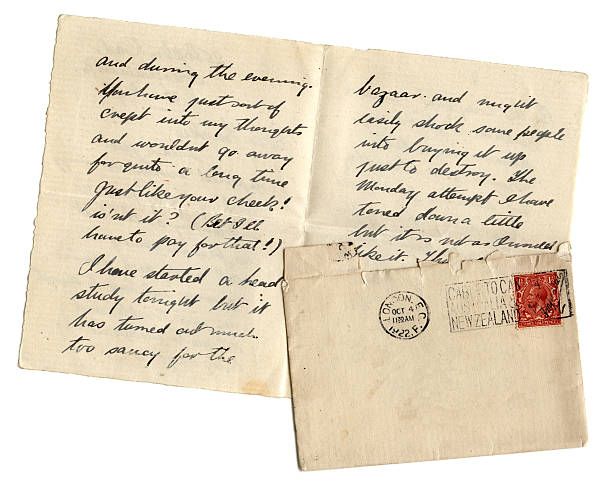 and during the evening.
You have just sort of
crept into my thoughts
and wouldn't go away
for quite a long time
Just like your cheek!
is'nt it? (Bet I'll
have to pay for that!)
I have started a head
study tonight but it
has turned out much
too saucy for the
bazaar. and might
easily shock some people
into buying it up
just to destroy. The
Monday attempt I have
toned down a little
but it is not as I
like it. The
LONDON, E.C.
OCT 4
1922. F.
CABLE TO CA
NEW ZEALAND